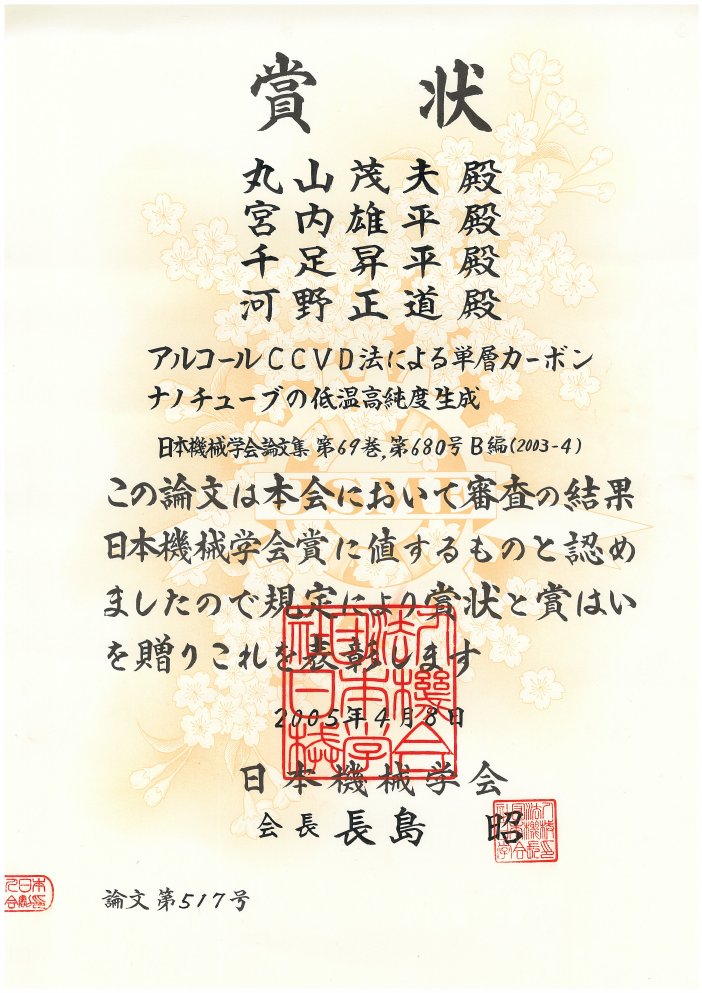 賞状
丸山茂夫殿
宮内雄平殿
千足昇平殿
河野正道殿
アルコールCCVD法による単層カーボン
ナノチューブの低温高純度生成
日本機械学会論文集 第69巻,第680号 B編(2003-4)
この論文は本会において審査の結果
日本機械学会賞に値するものと認め
ましたので規定により賞状と賞はい
を贈りこれを表彰します
2005年4月8日
日本機械学会
会長 長島 昭
論文第517号
JSME